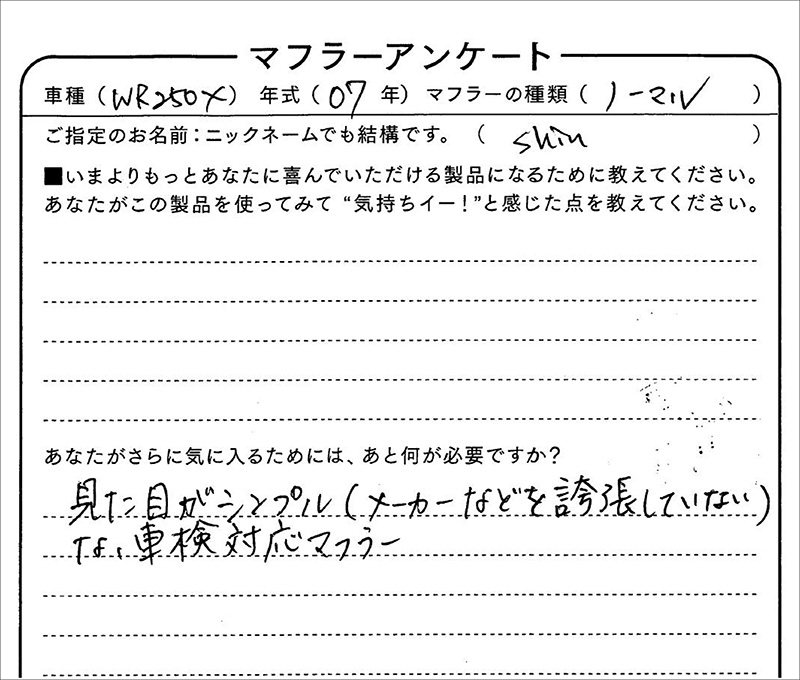 マフラーアンケート
車種（WR250X） 年式（07 年） マフラーの種類（ノーマル）
ご指定のお名前：ニックネームでも結構です。（shin）
■いまよりもっとあなたに喜んでいただける製品になるために教えてください。
あなたがこの製品を使ってみて “気持ちイー！”と感じた点を教えてください。
あなたがさらに気に入るためには、あと何が必要ですか？
見た目がシンプル（メーカーなどを誇張していない）
な、車検対応マフラー